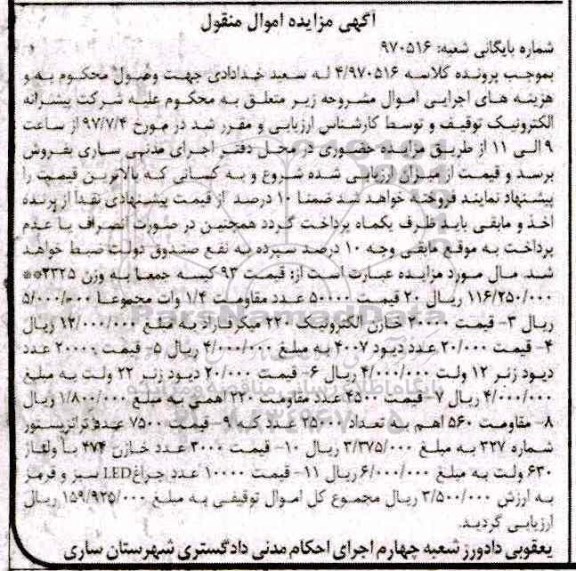 آگهی مزایده اموال منقول
شماره بایگانی شعبه: ۹۷۰۵۱۶
بموجب پرونده کلاسه ۴/۹۷۰۵۱۶ له سعید خدادادی جهت وصول محکوم به و
هزینه های اجرایی اموال مشروحه زیر متعلق به محکوم علیه شرکت پیشرانه
الکترونیک توقیف و توسط کارشناس ارزیابی و مقرر شد در مورخ ۹۷/۷/۴ از ساعت
۹ الی ۱۱ از طریق مزایده حضوری در محل دفتر اجرای مدنی ساری بفروش
برسد و قیمت از میزان ارزیابی شده شروع و به کسانی که بالاترین قیمت را
پیشنهاد نمایند فروخته خواهد شد ضمنا ۱۰ درصد از قیمت پیشنهادی نقدا از برنده
اخذ و مابقی باید ظرف یکماه پرداخت گردد همچنین در صورت انصراف یا عدم
پرداخت به موقع مابقی وجه ۱۰ درصد سپرده به نفع صندوق دولت ضبط خواهد
شد. مال مورد مزایده عبارت است از: قیمت ۹۳ کیسه جمعا به وزن ۲۳۲۵**
۱۱۶/۲۵۰/۰۰۰ ریال ۲۰ قیمت ۵۰۰۰۰ عدد مقاومت ۱/۴ وات مجموعا ۵/۰۰۰/۰۰۰
ریال ۳- قیمت ۲۰۰۰۰ خازن الکترونیک ۲۲۰ میکرفاراد به مبلغ ۱۲/۰۰۰/۰۰۰ ریال
۴- قیمت ۲۰/۰۰۰ عدد دیود ۴۰۰۷ به مبلغ ۴/۰۰۰/۰۰۰ ریال ۵- قیمت ۲۰۰۰۰ عدد
دیود زنر ۱۲ ولت ۴/۰۰۰/۰۰۰ ریال ۶- قیمت ۲۰/۰۰۰ دیود زنر ۲۲ ولت به مبلغ
۴/۰۰۰/۰۰۰ ریال ۷- قیمت ۴۵۰۰ عدد مقاومت ۲۲۰ اهمی به مبلغ ۱/۸۰۰/۰۰۰ ریال
۸- مقاومت ۵۶۰ اهم به تعداد ۲۵۰۰۰ عدد که ۹- قیمت ۷۵۰۰ عدد ترانزیستور
شماره ۳۲۷ به مبلغ ۳/۳۷۵/۰۰۰ ریال ۱۰- قیمت ۳۰۰۰ عدد خازن ۴۷۴ با ولتاژ
۶۳۰ ولت به مبلغ ۶/۰۰۰/۰۰۰ ریال ۱۱- قیمت ۱۰۰۰۰ عدد چراغ LED سبز و قرمز
به ارزش ۳/۵۰۰/۰۰۰ ریال مجموع کل اموال توقیفی به مبلغ ۱۵۹/۹۲۵/۰۰۰ ریال
ارزیابی گردید.
یعقوبی دادورز شعبه چهارم اجرای احکام مدنی دادگستری شهرستان ساری
ParsNamadData